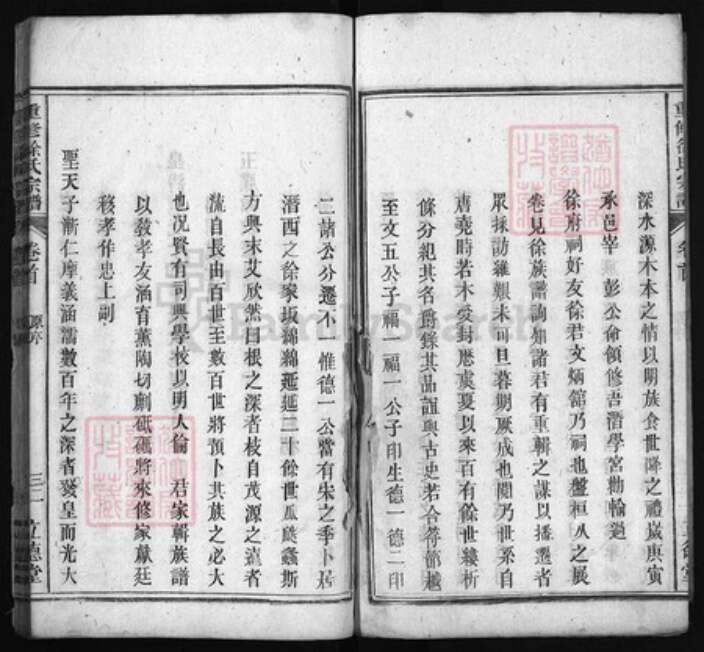 深水源木本之情以明族食世降之禮歲庚寅
承邑宰 彭公命領修吾潛學宮勸輸過
徐府祠好友徐君文炳舘乃祠也盤桓久之展
卷見徐族譜詢知諸君有重輯之謀以播遷者
眾採訪維艱未可旦暮期厥成也閱乃世系自
唐堯時若木受封歷虞夏以來百有餘世縷析
條分紀其名爵錄其品誼與古史若合符節越
至文五公子福一福一公子印生德一德二印
二諸公分遷不一惟德一公當有宋之季卜居
潛西之餘家坂綿綿延延三十餘世瓜瓞螽斯
方興未艾欣然曰根之深者枝自茂源之遠者
流自長由百世至數百世將預卜其族之必大
也况賢有司興學校以明人倫 君家輯族譜
以敎孝友涵育薰陶切劘砥礪將來修家獻廷
移孝作忠上副
聖天子漸仁摩義涵濡數百年之深者發皇而光大
重修徐氏宗譜 卷首 原序 三一 立德堂